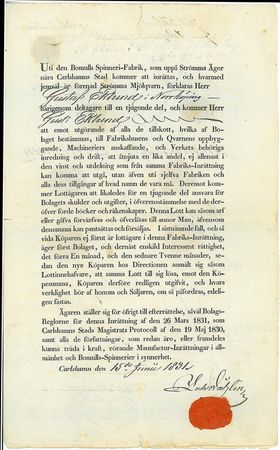 Uti den Bomulls Spinneri-Fabrik, som uppå Strömma Ägor
nära Carlshamns Stad kommer att inrättas, och hvarmed
jemväl är förenad Strömma Mjölqvarn, förklaras Herr
Gustaf Eklund i Norrköping
härigenom deltagare till en tjugonde del, och kommer Herr
Gust. Eklund
att emot utgörande af alla de tillskott, hvilka af Bo-
laget bestämmas, till Fabrikshusens och Qvarnens uppbyg-
gande, Machineriers anskaffande, och Verkets behöriga
inredning och drift, att åtnjuta en lika andel, ej allenast i
den vinst och utdelning som från samma Fabriks-Inrättning
kan komma att utgå, utan äfven uti sjelfva Fabriken och
alla dess tillgångar af hvad namn de vara må. Deremot kom-
mer Lottägaren att likaledes för en tjugonde del ansvara för
Bolagets skulder och utgifter, i öfverensstämmelse med de der-
öfver förde böcker och räkenskaper. Denna Lott kan såsom arf
eller gifva förvärfvas och öfverlåtas till annor Man, äfvensom
densamma kan pantsättas och försäljas. I sistnämnde fall, och så
vida Köparen ej förut är lottägare i denna Fabriks-Inrätt-
ning, äger först Bolaget, och dernäst enskild Interessent rättighet,
det förra En månad, och den sednare Tvenne månader, se-
dan den nye Köparen hos Directionen anmält sig såsom
Lottinnehafvare, att samma Lott till sig lösa, emot den Kö-
pesumma, Köparen derföre redligen utgifvit, och hvars
verklighet bör af honom och Säljaren, om så påfordras, ed-
ligen fästas.
Ägaren ställer sig för öfrigt till efterrättelse, såväl Bolags-
Reglorne för denna Inrättning af den 26 Mars 1831, som
Carlshamns Stads Magistrats Protocoll af den 19 Maj 1830,
samt alla de författningar, som redan äro, eller framdeles
kunna träda i kraft, rörande Manufactur-Inrättningar i all-
mänhet och Bomulls-Spinnerier i synnerhet.
Carlshamn den 15de Junii 1831.